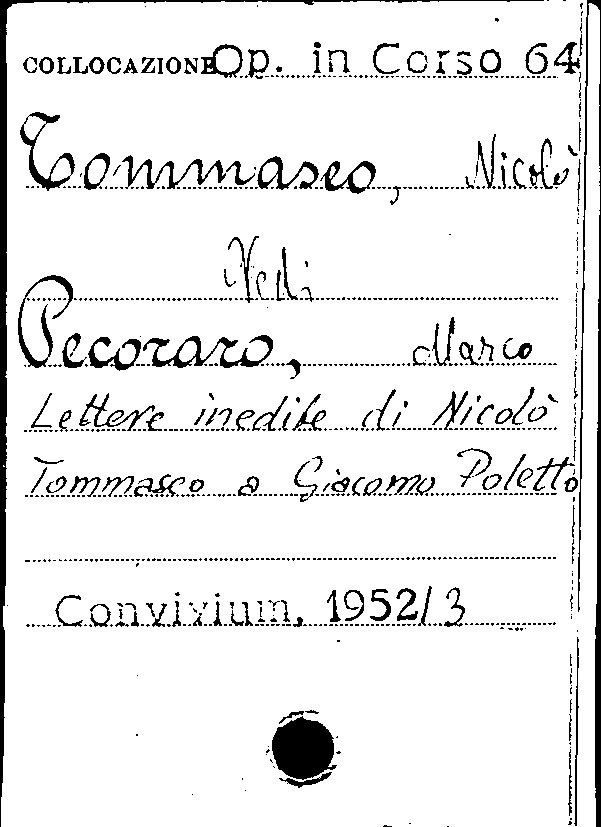 COLLOCAZIONE Op. in Corso 64
Tommaseo, Nicolò
Vedi
Pecoraro, Marco
Lettere inedite di Nicolò
Tommaseo a Giacomo Poletto
Convivium, 1952/3